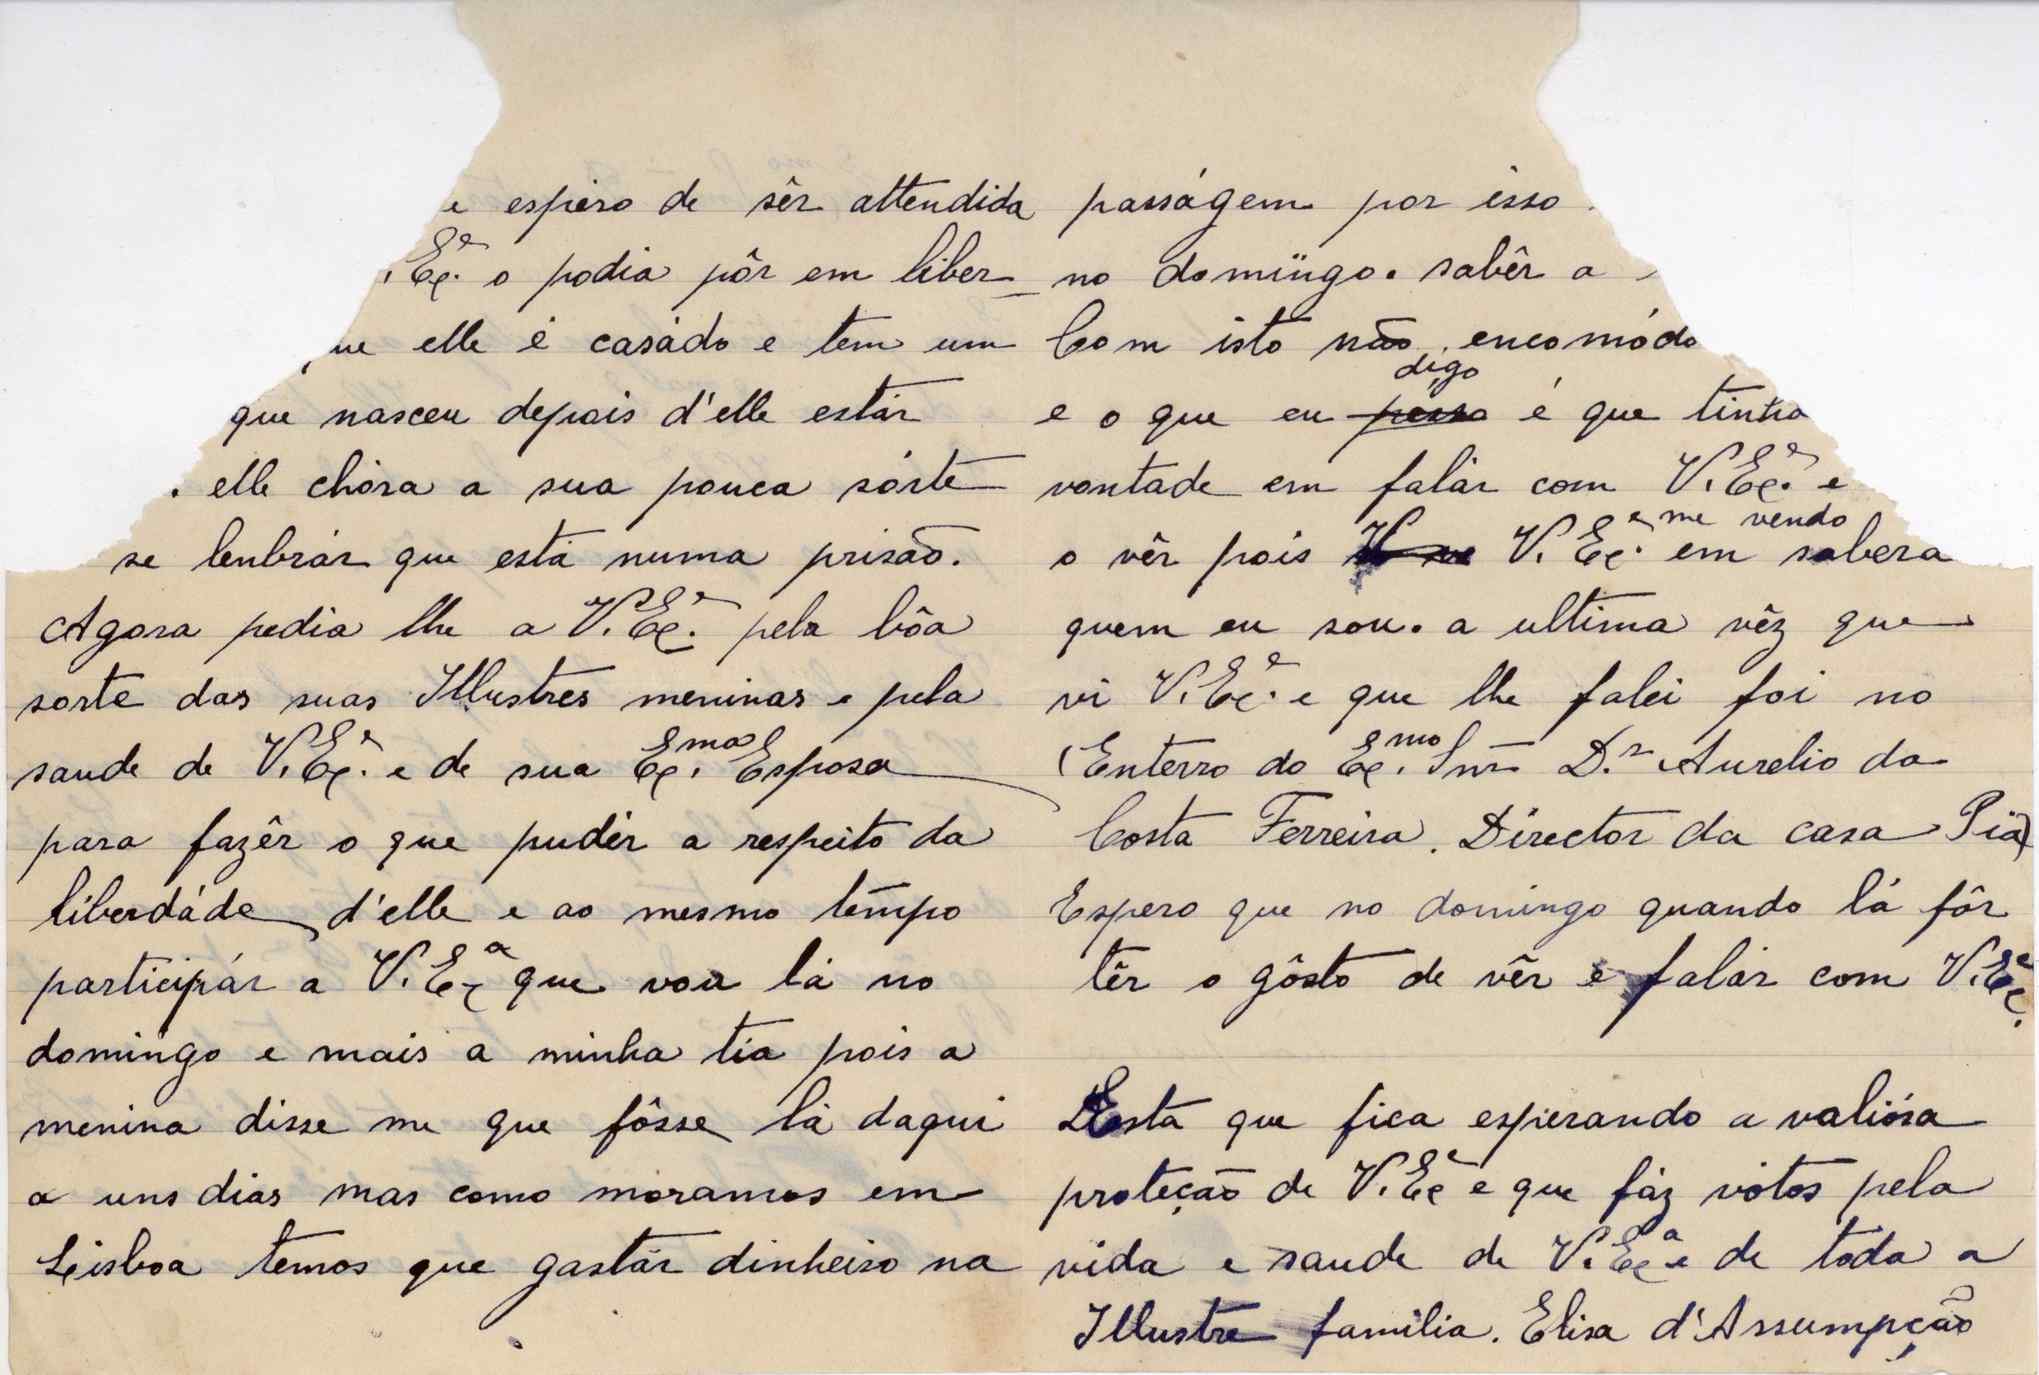 e espero de sêr attendida
. Exª o podia pôr em liber_
elle é casádo e tem um
que nasceu depois d'elle estár
elle chóra a sua pouca sórte
se lenbrár que está numa prisaõ.
Agora pedia lhe a V. Exª pela bôa
sorte das suas Illustres meninas e pela
saude de V. Exª e de sua Exma Esposa
para fazêr o que pudér a respeito da
liberdáde d'elle e ao mesmo tempo
participár a V. Exª que vou lá no
domingo e mais a minha tia pois a
menina disse me que fôsse lá daqui
a uns dias mas como moramos em
Lisboa temos que gastár dinheiro na
passágem por isso
no domingo. sabêr a
Com isto não encomódo
e o que eu posso digo é que tinha
vontade em falár com V. Exª e
o vêr pois V. Exª em me vendo sabera
quem eu sou. a ultima vêz que
vi V. Exª e que lhe falei foi no
(Enterro do Exmo Snr Dr Aurelio da
Costa Ferreira. Director da casa Pia)
Espero que no domingo quando lá fôr
têr o gôsto de vêr e falár com V. Exª.
Esta que fica esperando a valiósa
proteção de V. Exª e que fáz vótos pela
vida e saude de V. Exª e de toda a
Illustre familia. Elisa d'Assumpção